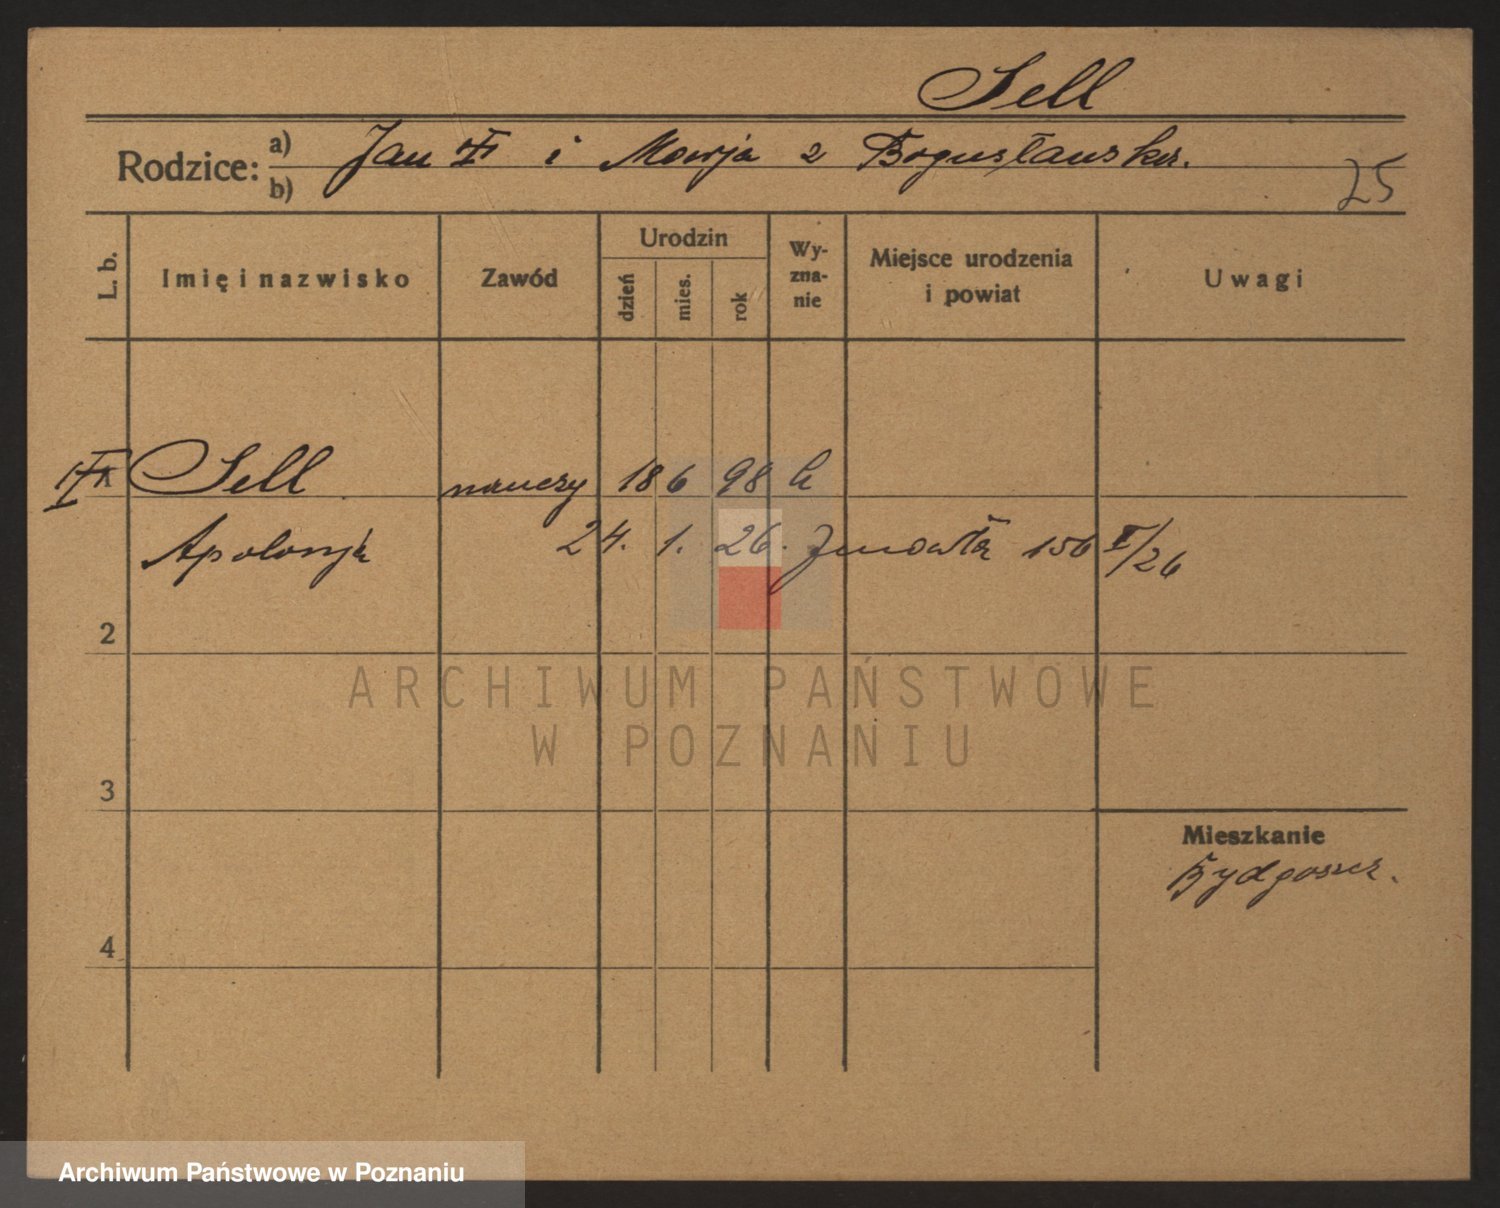 Sell
Rodzice: a) Jan i Marja z Bogusławska.
b)
25
L. b. Imię i nazwisko Zawód Urodzin dzień mies. rok Wy-zna-nie Miejsce urodzenia i powiat Uwagi
1 Sell nauczy 18 6 98
Apolonja 24. 1. 26. zmarła 156 I/26
2
3
Mieszkanie
Bydgoszcz.
4
ARCHIWUM PAŃSTWOWE
W POZNANIU
Archiwum Państwowe w Poznaniu